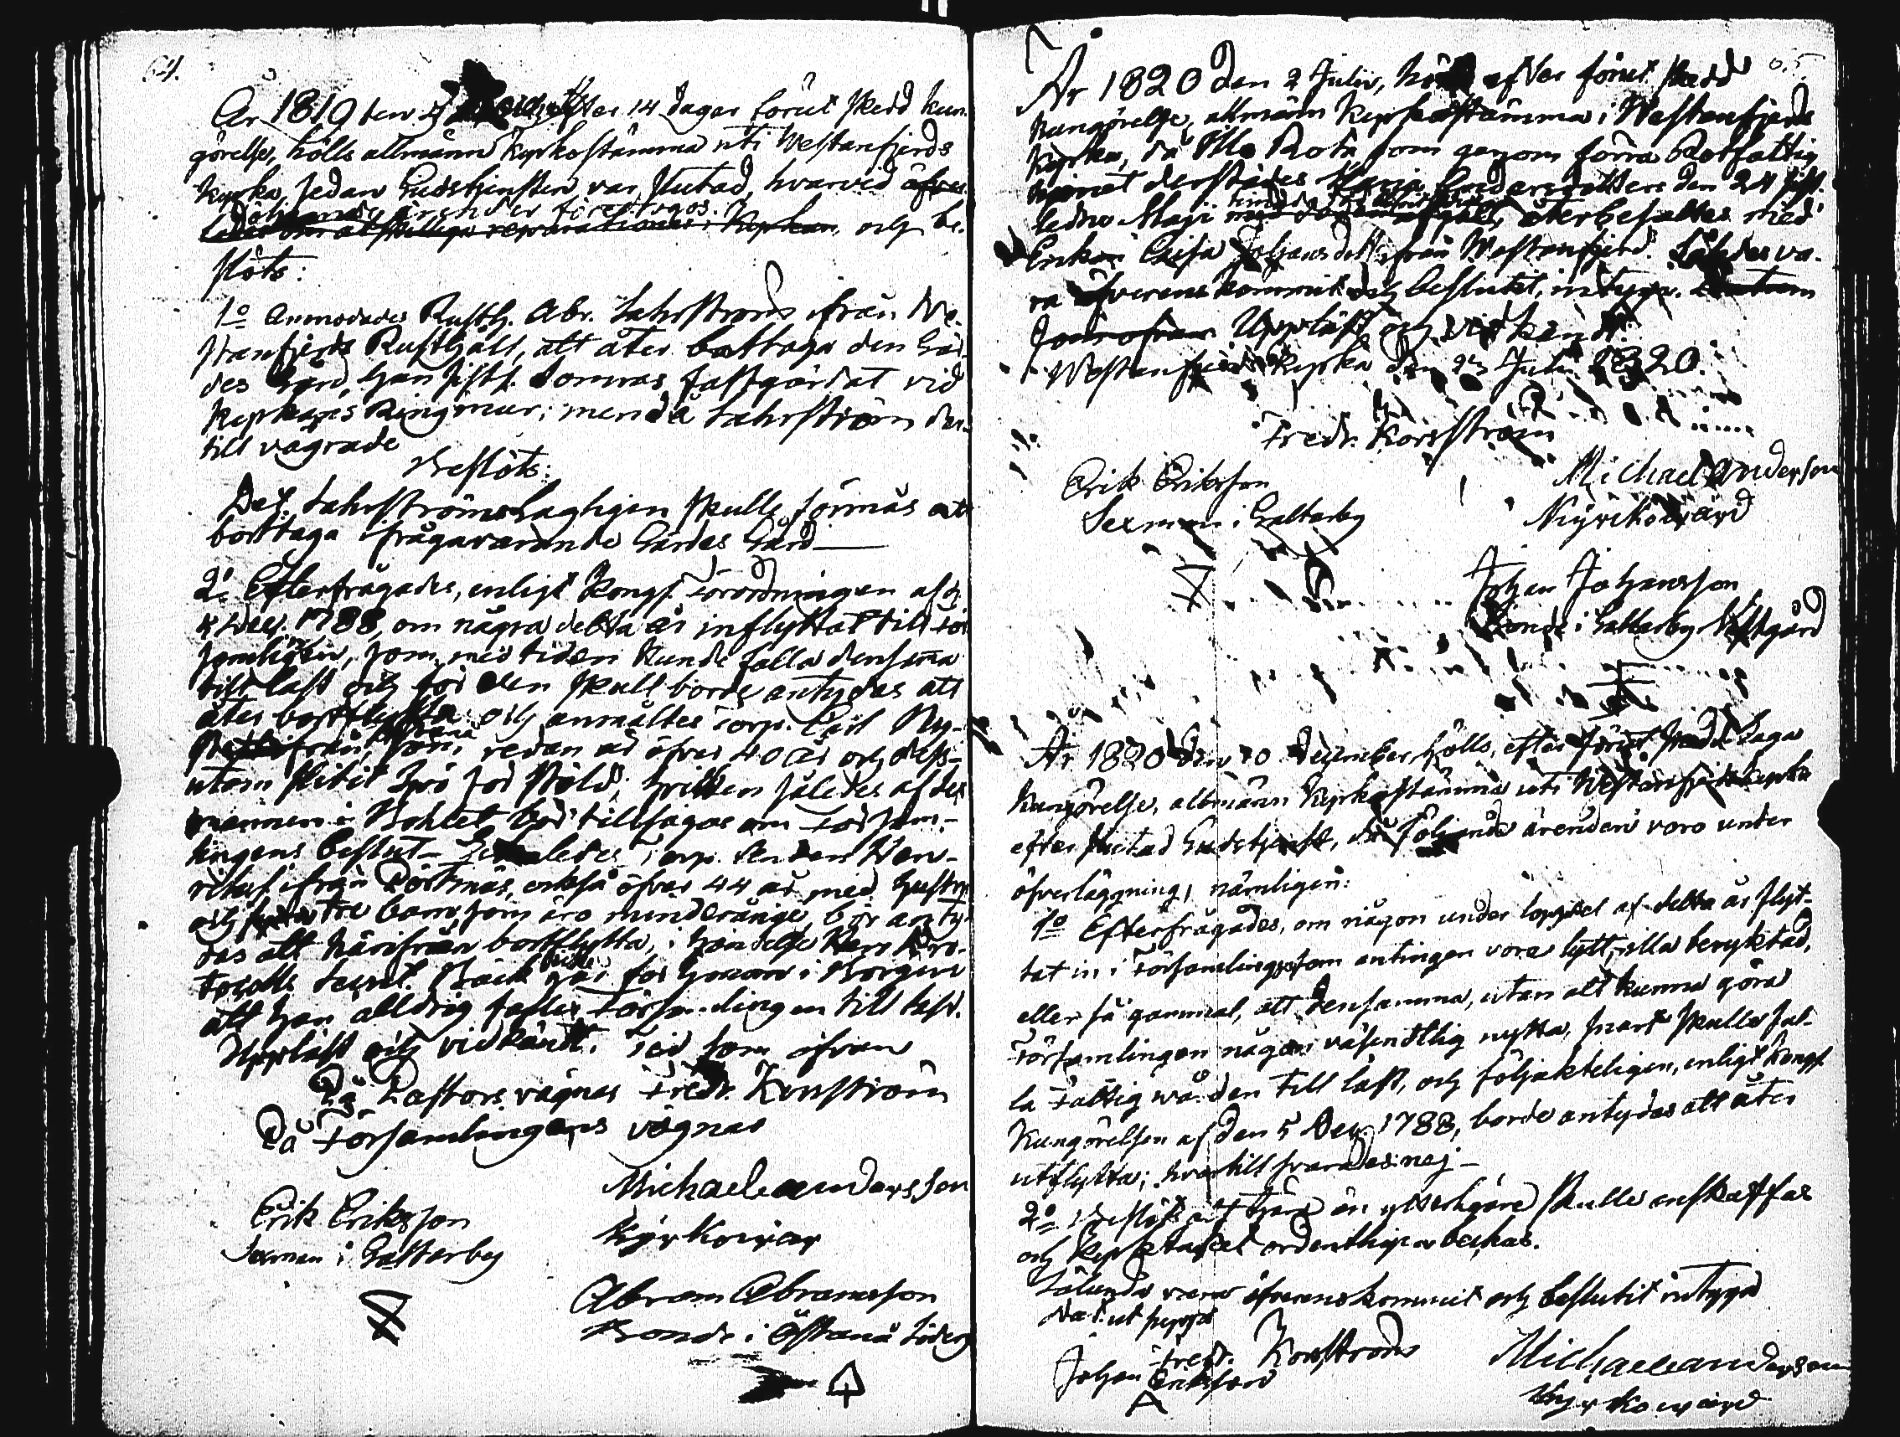 64.
År 1819 den 4 efter 14 dagar förut skedd kun-
görelse, hölls allmänn Kyrkostämma uti Westanfjerds
kyrka, sedan Gudstjensten var slutad, hvarvid
följande ärender företogos: och be-
slöts:
1:o Anmodades Rusth. Abr. Sahrström ifrån We-
stanfjerds Rusthåll, att åter borttaga den Gär-
des Gård, han sistl. Sommar fastgärdat vid
Kyrkans Ringmur; men då Sahrström der-
till vägrade
Beslöts:
Det Sahrström Lagligen skulle förmås att
borttaga ifrågavarande Gärdes Gård
2:o Efterfrågades, enligt Kongl. Förordningen af d.
Dec. 1788, om några detta år inflyttat till För-
samlingen, som med tiden kunde falla densamma
till last och för den skull borde antydas att
åter bortflytta och anmältes Torp. Carl Ny-
ifrån redan är öfver 40 år och dess-
utom slitit Spö för Stöld; hvilken således af des
männen i Bohlet bör tillsägas om Försam-
lingens beslut. Torp. Anders Hen-
riksf. ifrån Dörtmäs, också öfver 44 år med hustru
och tre barn, som äro minderårige, bör anty-
das att härifrån bortflytta, i händelse Herr Pro-
tocolls Secret. Bäck går för honom i Borgen
att han alldrig faller Församlingen till last.
Uppläst och vidkändt. Tid som ofvan
På Pastors vägnar Fredr. Korsström
På Församlingens vägnar
Michael andersson
Kyrkowär
Erik Eriksson
Sexman i Galtarby
Abram Abramsson
Bonde i Östanå Söderg

65
År 1820 den 2 Julii, hölls efter förut skedd
kungörelse, allmänn Kyrkostämma i Westanfjerds
kyrka, då 8:de Rota som genom förra Rotfattig
hjonet derstädes Maria Andersdotters den 24 sist-
ledne Maji återbesattes med
Enkan Caisa Johansdotter från Westanfjerd. Således va-
ra öfverenskommit och beslutit, intyga.
Uppläst och vidkändt.
Westanfjerds kyrka den 2 Julii 1820.
Fredr. Korsström
Erik Eriksson
Sexman i Galtarby
Michael Anderson
Kyrkowärd
Johan Johansson
Bonde i Galtarby Westgård
År 1820 den 10 December hölls, efter förut skedd Laga
Kungörelse, allmänn Kyrkostämma uti Westanfjerds kyrka
efter slutad Gudstjenst, då följande ärender voro under
öfverläggning, nämligen:
1:o Efterfrågades, om någon under loppet af detta år flyt-
tat in i Församlingen som antingen vore lytt, illa beryktad,
eller så gammal, att densamma, utan att kunna göra
Församlingen någon väsendtlig nytta, snart skulle fal-
la Fattigvården till last, och följakteligen, enligt Kongl.
Kungörelsen af den 5 Dec. 1788, borde antydas att åter
utflytta; hvartill svarades nej.
2:o Beslöts att tjära än ytterligare skulle anskaffas
och Kyrkotaket ordentligen beckas.
Således vara öfverenskommit och beslutit intyga
dat. ut supra
Fredr. Korsström
Johan Eriksson
Michael andersson
Kyrkowärd